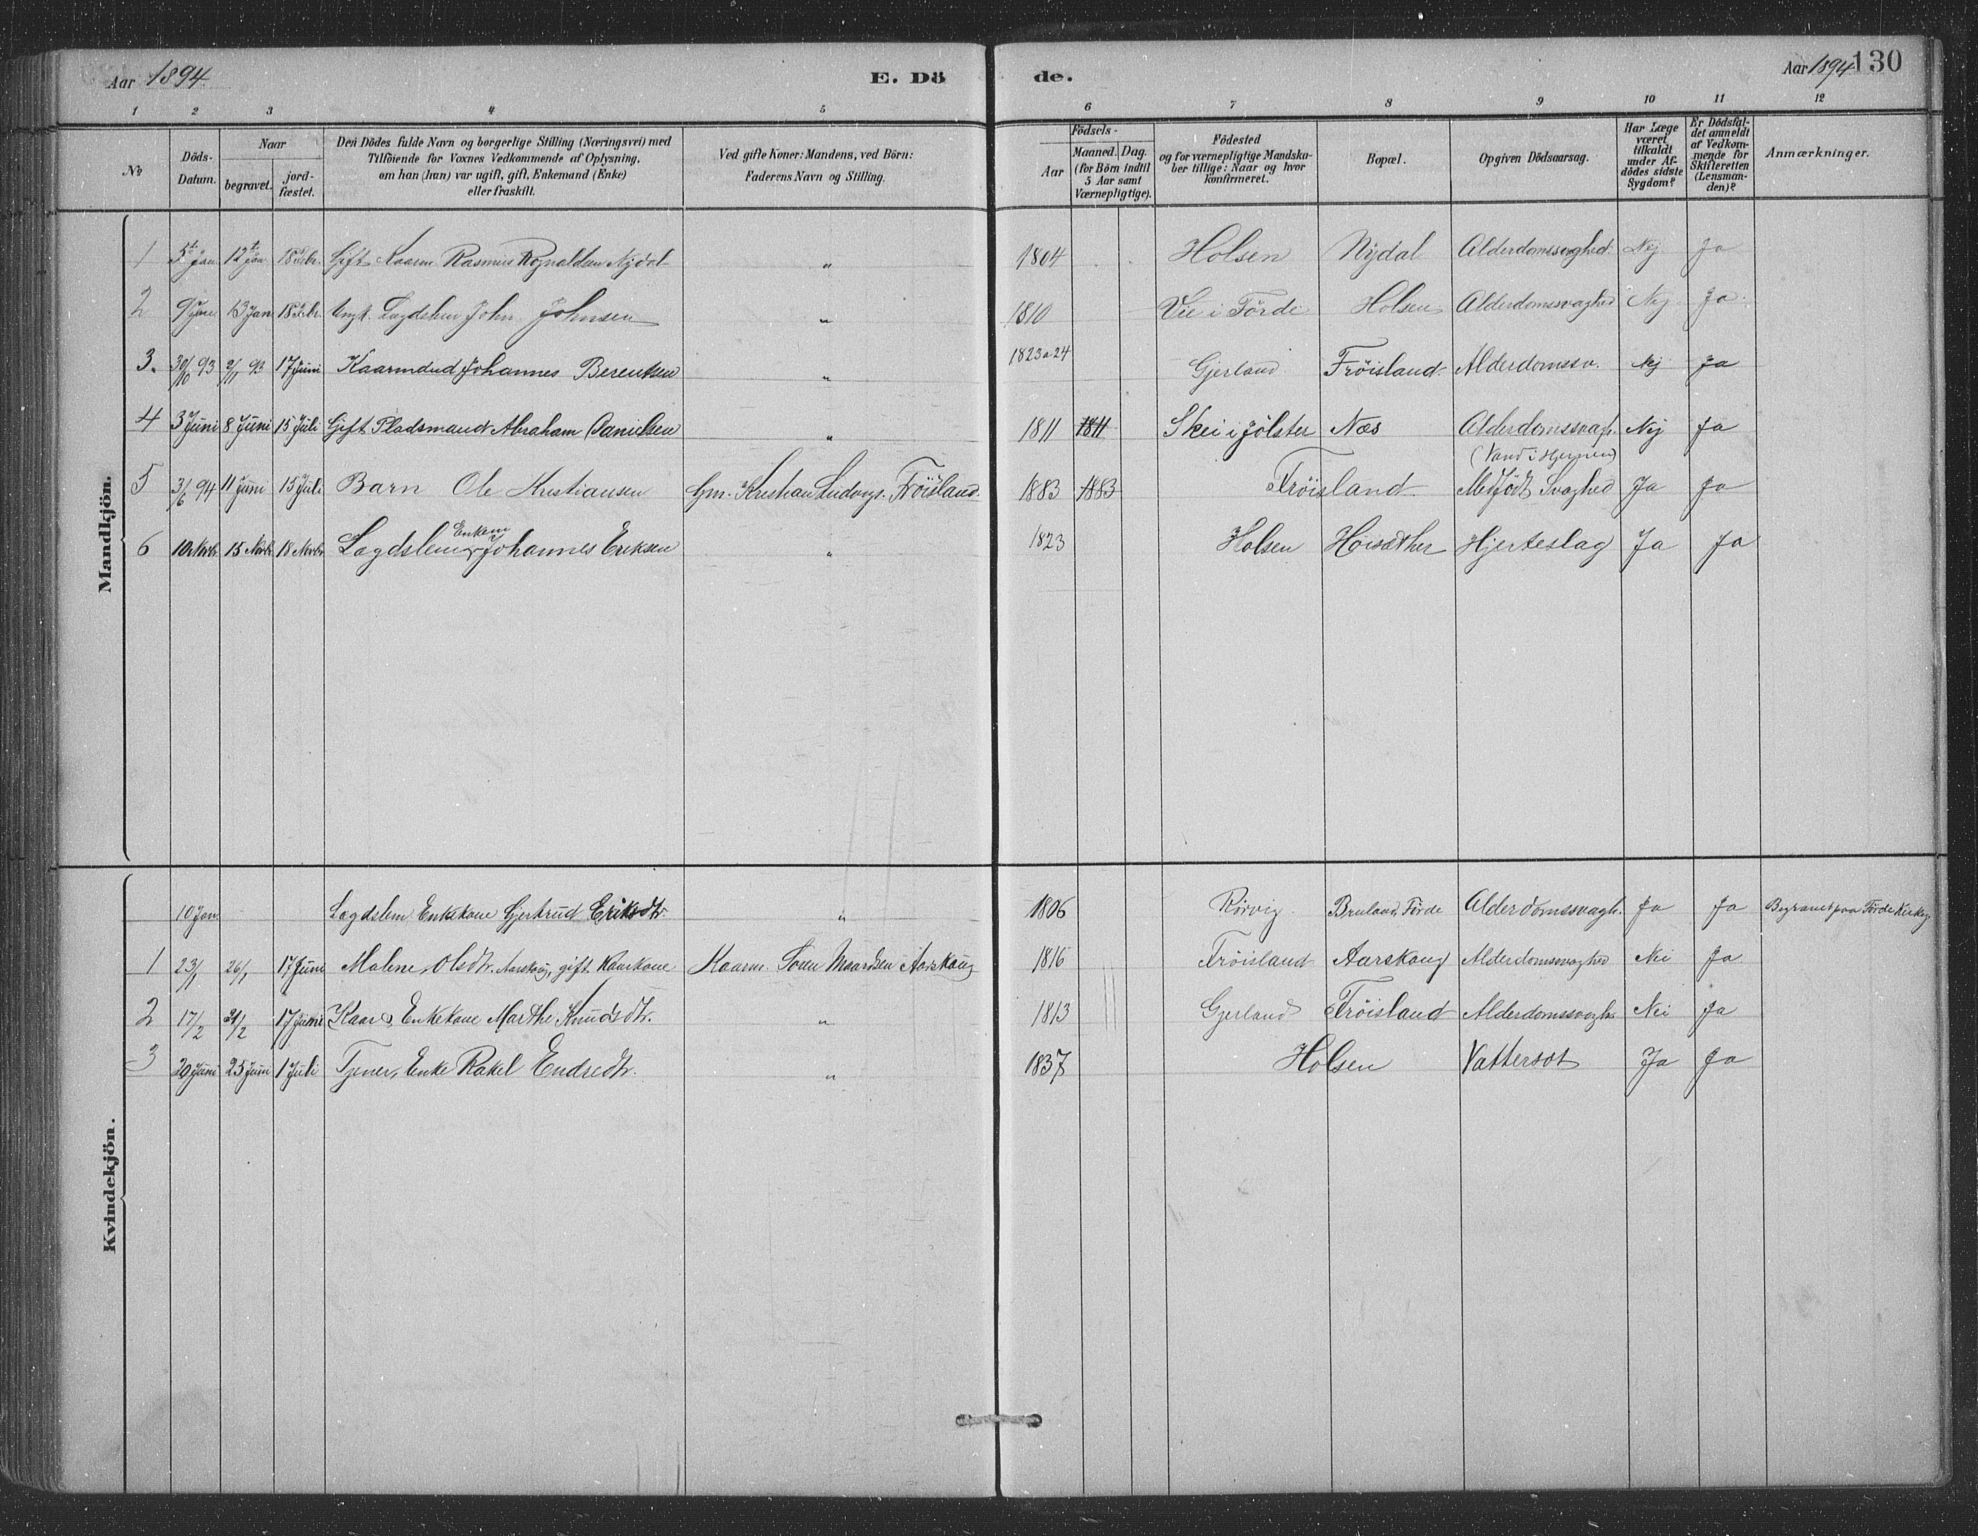 Aar 1894. E. Dö de. Aar 1894 130
1 2 3 4 5 6 7 8 9 10 11 12
No
Döds-Datum.
Naar
begravet.
jord-fæstet.
Den Dödes fulde Navn og borgerlige Stilling (Næringsvei) med
Tilföiende for Voxnes Vedkommende af Oplysning,
om han (hun) var ugift, gift, Enkemand (Enke)
eller fraskilt.
Ved gifte Koner: Mandens, ved Börn:
Faderens Navn og Stilling.
Födsels-
Aar
Maaned. Dag.
(for Börn indtil
5 Aar samt
Værnepligtige).
Födested
og for værnepligtige Mandska-
ber tillige: Naar og hvor
konfirmeret.
Bopæl.
Opgiven Dödsaarsag.
Har Læge
været
tilkaldt
under Af-
dödes sidste
Sygdom?
Er Dödsfal-
det anmeldt
af Vedkom-
mende for
Skifteretten
(Lensman-
den)?
Anmærkninger.
Mandkjön.
1 5t Jan 12t Jan 18 Febr. Gift Kaarm Rasmus Rognaldsen Nydal " 1804 Holsen Nydal Alderdomssvaghed Nej Ja
2 9 Jan 13 Jan 18 Febr. Lagdslem John Johnsen " 1810 Vie i Förde Holsen Alderdomssvaghed Nej Ja
3. 30/10 93 2/11 93 17 Juni Kaarmand Johannes Berentsen " 1823 a 24 Gjerland Fröisland Alderdomssv. Nej Ja
4 3 Juni 8 Juni 15 Juli Gift Pladsmand Abraham Danielsen " 1811 1811 Skei i Jölster Næs Alderdomssvagh. Nej Ja
5 3/6 94 11 Juni 15 Juli Barn Ole Kristiansen Gm. Kristian Ludvigs. Fröisland. 1883 1883 Fröisland (Vand i Hjernen) Medfödt Svaghed Ja Ja
6 10 Novbr. 15 Novbr. 18 Novbr. Lagdslem Enkem Johannes Eriksen " 1823 Holsen Höisæther Hjerteslag Ja Ja
Kvindekjön.
10 Jan Lægdslem Enkekone Gjertrud Eriksdtr. " 1806 Rörvig Bruland, Förde Alderdomssvagh. Ja Ja Begravet paa Förde Kirkeg
1 23/1 26/1 17 Juni Malene Olsdtr. Aarskoug, gift Kaarkone Kaarm. Sören Aarskoug 1816 Fröisland Aarskoug Alderdomssvaghed Nei Ja
2 17/2 21/2 17 Juni Kaar Enkekone Marthe Knudsdtr. " 1813 Gjerland Fröisland Alderdomssvagh. Nei Ja
3 20 Juni 25 Juni 1 Juli Tjener, Enke Rakel Endredtr. " 1837 Holsen Vattersot Ja Ja